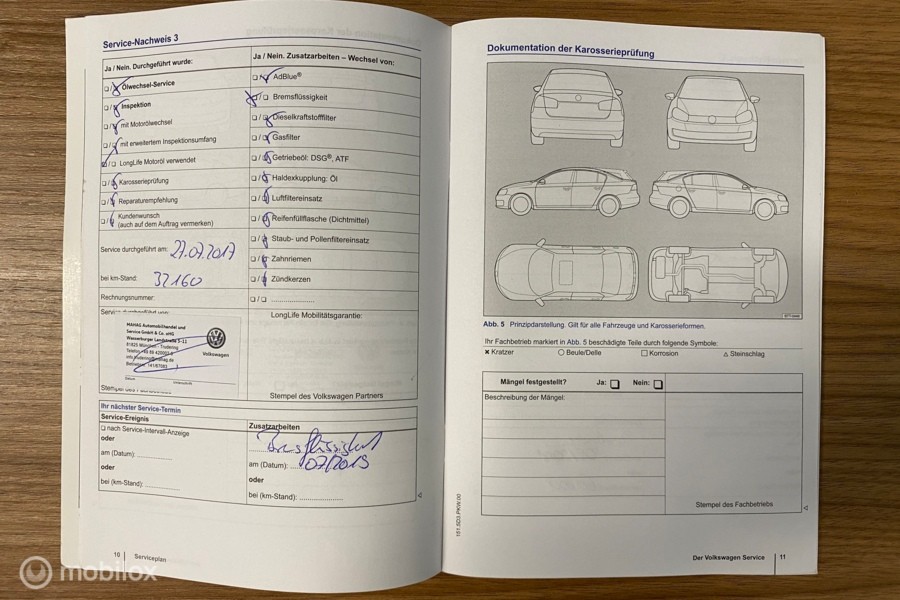 Service-Nachweis 3
Ja / Nein. Durchgeführt wurde:
❏/❏ Ölwechsel-Service
❏/❏ Inspektion
❏/❏ mit Motorölwechsel
❏/❏ mit erweitertem Inspektionsumfang
❏/❏ LongLife Motoröl verwendet
❏/❏ Karosserieprüfung
❏/❏ Reparaturempfehlung
❏/❏ Kundenwunsch
(auch auf dem Auftrag vermerken)
Service durchgeführt am: 27.07.2017
bei km-Stand: 32160
Rechnungsnummer:
Service durchgeführt von:
MAHAG Automobilhandel und
Service GmbH & Co. oHG
Wasserburger Landstraße 5-11
81825 München - Trudering
Volkswagen
Stempel des
Ja / Nein. Zusatzarbeiten – Wechsel von:
❏/❏ AdBlue®
❏/❏ Bremsflüssigkeit
❏/❏ Dieselkraftstofffilter
❏/❏ Gasfilter
❏/❏ Getriebeöl: DSG®, ATF
❏/❏ Haldexkupplung: Öl
❏/❏ Luftfiltereinsatz
❏/❏ Reifenfüllflasche (Dichtmittel)
❏/❏ Staub- und Pollenfiltereinsatz
❏/❏ Zahnriemen
❏/❏ Zündkerzen
❏/❏ ....................
LongLife Mobilitätsgarantie:
Stempel des Volkswagen Partners
Ihr nächster Service-Termin
Service-Ereignis
❏ nach Service-Intervall-Anzeige
oder
am (Datum): ................
oder
bei (km-Stand): ................
Zusatzarbeiten
Bremsflüssigkeit
am (Datum): 07/2019
oder
bei (km-Stand): ....................
10 | Serviceplan
mobilox
Dokumentation der Karosserieprüfung
Abb. 5 Prinzipdarstellung. Gilt für alle Fahrzeuge und Karosserieformen.
Ihr Fachbetrieb markiert in Abb. 5 beschädigte Teile durch folgende Symbole:
✖ Kratzer ○ Beule/Delle □ Korrosion △ Steinschlag
Mängel festgestellt? Ja: ❏ Nein: ❏
Beschreibung der Mängel:
Stempel des Fachbetriebs
151.5D3.PKW.00
Der Volkswagen Service | 11